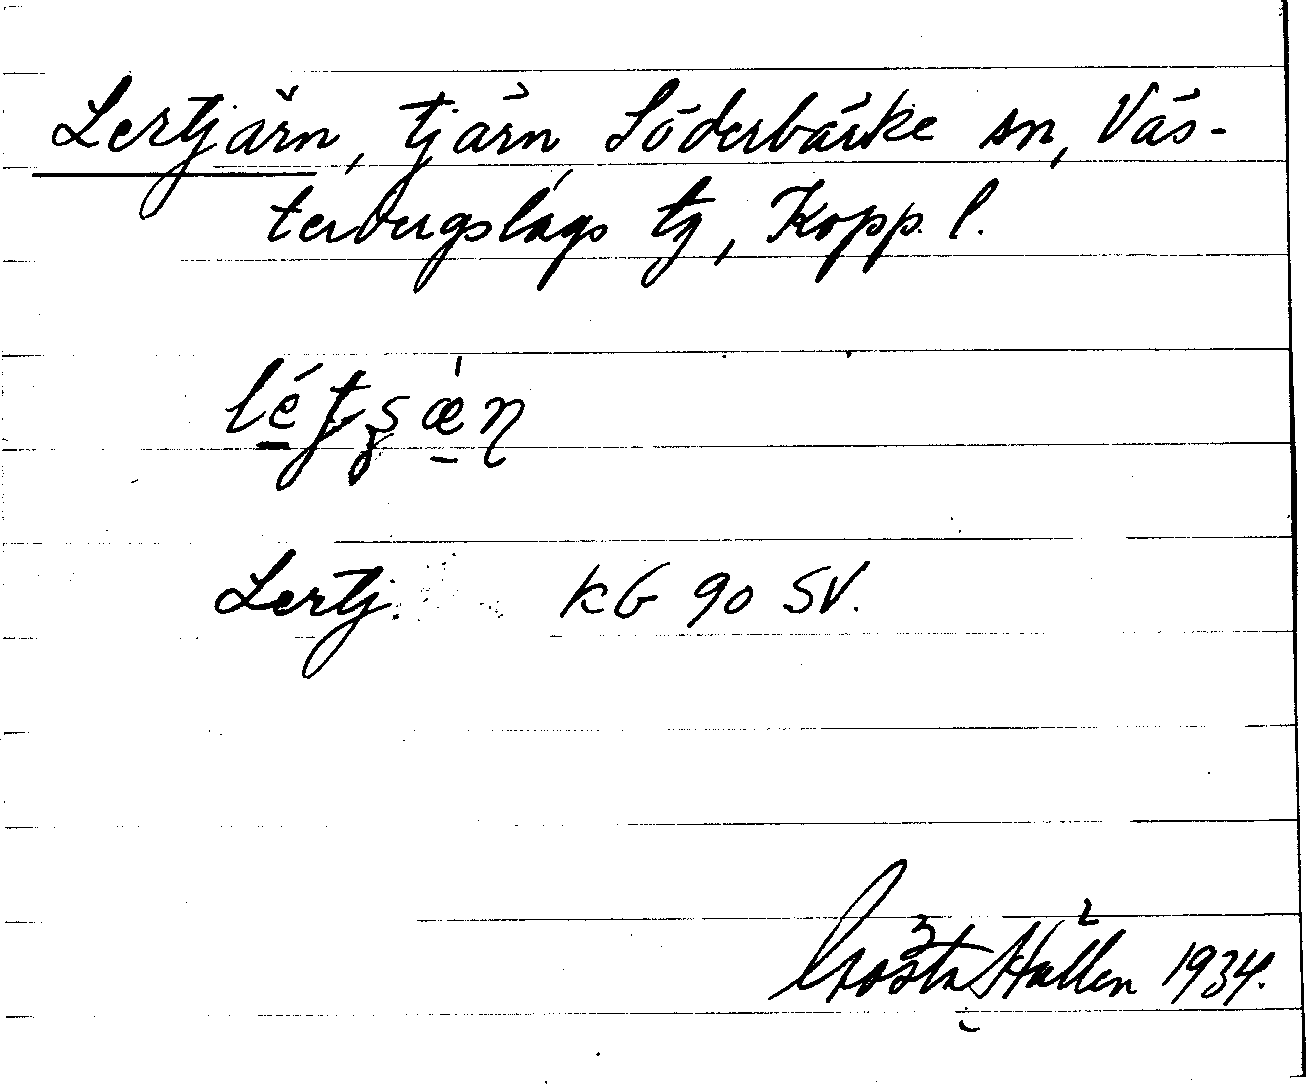 Lertjärn, tjärn, Söderbärke sn, Väs-
terbergslags tg, Kopp. l.
Lertj. KG 90 SV.
Gösta Hällen 1934.